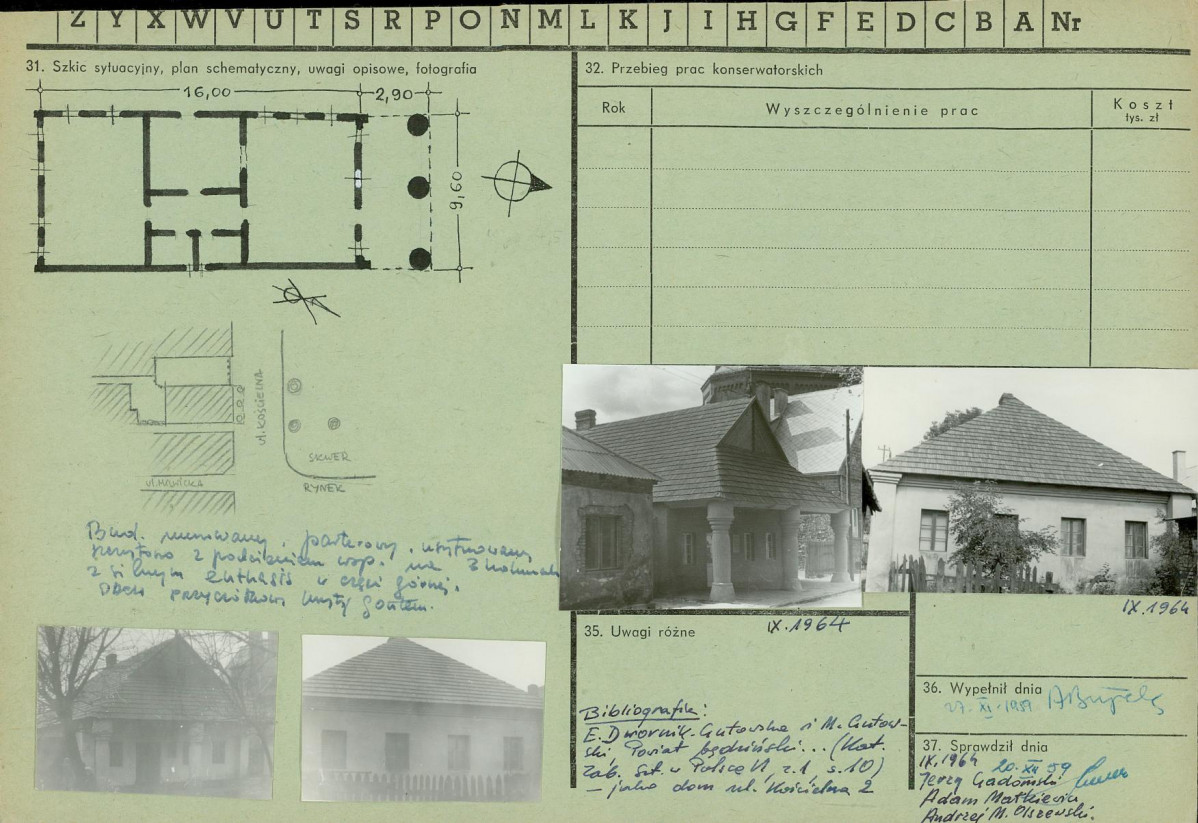 Z Y X W V U T S R P O N M L K J I H G F E D C B A Nr
31. Szkic sytuacyjny, plan schematyczny, uwagi opisowe, fotografia
16,00 2,90
9,60
ul. KOŚCIELNA
SKWER
RYNEK
Bud. murowany, parterowy, usytuowany
szczytowo z podcieniem wsp. na 3 kolumnach
z silnym enthasis w części górnej.
Dach kryty gontem.
32. Przebieg prac konserwatorskich
Rok Wyszczególnienie prac Koszt
tys. zł
IX.1964
IX.1964
35. Uwagi różne
Bibliografia:
E. Dwornik-Gutowska i M. Gutow-
ski, Powiat będziński... (Kat.
Zab. Szt. w Polsce VI, z.1 s.10)
– jako dom ul. Kościelna 2
36. Wypełnił dnia
27. XI. 1959
37. Sprawdził dnia
IX.1964 20. XII 59
Jerzy Gadomski
Adam Małkiewicz
Andrzej M. Olszewski.